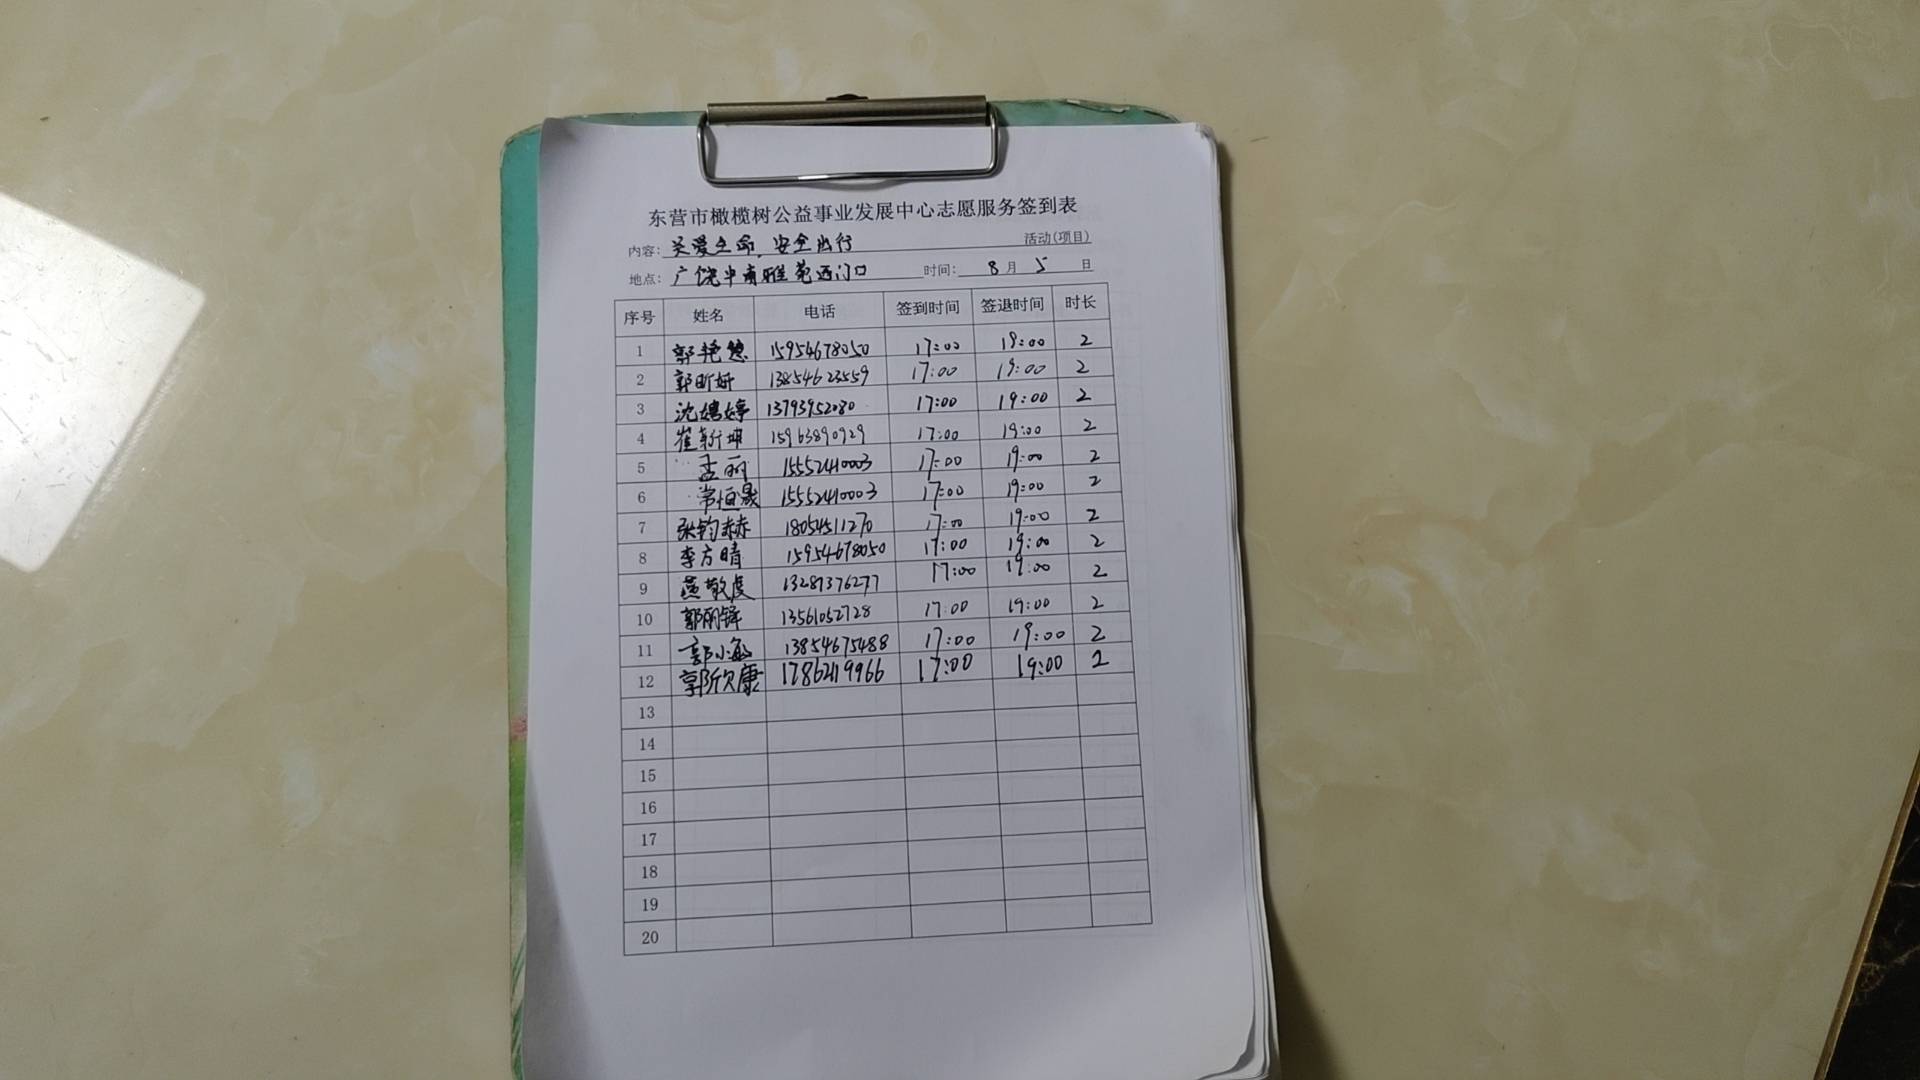 东营市橄榄树公益事业发展中心志愿服务签到表
内容: 关爱生命,安全出行 活动(项目)
地点: 广饶中南雅苑西门口 时间: 8月5日
序号 姓名 电话 签到时间 签退时间 时长
1 郭艳 15954678050 17:00 19:00 2
2 郭昕妍 13854623559 17:00 19:00 2
3 沈婷 13793952080 17:00 19:00 2
4 崔新坤 15963890929 17:00 19:00 2
5 孟丽 15552410003 17:00 19:00 2
6 常恒晟 15552410003 17:00 19:00 2
7 张钧赫 18054511270 17:00 19:00 2
8 李方晴 15954678050 17:00 19:00 2
9 燕敬虔 13287376277 17:00 19:00 2
10 郭丽铎 13561052728 17:00 19:00 2
11 郭小敏 13854675488 17:00 19:00 2
12 郭欣康 17862119966 17:00 19:00 2
13
14
15
16
17
18
19
20